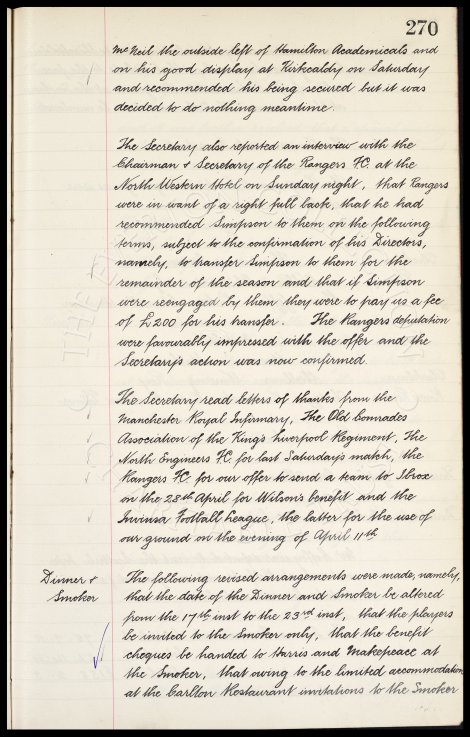 270
McNeil the outside left of Hamilton Academicals and
on his good display at Kirkcaldy on Saturday
and recommended his being secured but it was
decided to do nothing meantime.
The Secretary also reported an interview with the
Chairman & Secretary of the Rangers F.C. at the
North Western Hotel on Sunday night, that Rangers
were in want of a right full back, that he had
recommended Simpson to them on the following
terms, subject to the confirmation of his Directors,
namely, to transfer Simpson to them for the
remainder of the season and that if Simpson
were reengaged by them they were to pay us a fee
of £200 for his transfer. The Rangers deputation
were favourably impressed with the offer and the
Secretary's action was now confirmed.
The Secretary read letters of thanks from the
Manchester Royal Infirmary, The Old Comrades
Association of the King's Liverpool Regiment, The
North Engineers F.C. for last Saturday's match, the
Rangers F.C. for our offer to send a team to Ibrox
on the 28th April for Wilson's benefit and the
Football League, the latter for the use of
our ground on the evening of April 11th.
Dinner &
Smoker
The following revised arrangements were made, namely,
that the date of the Dinner and Smoker be altered
from the 17th inst to the 23rd inst, that the players
be invited to the Smoker only, that the benefit
cheques be handed to Harris and Makepeace at
the Smoker, that owing to the limited accommodation
at the Carlton Restaurant invitations to the Smoker